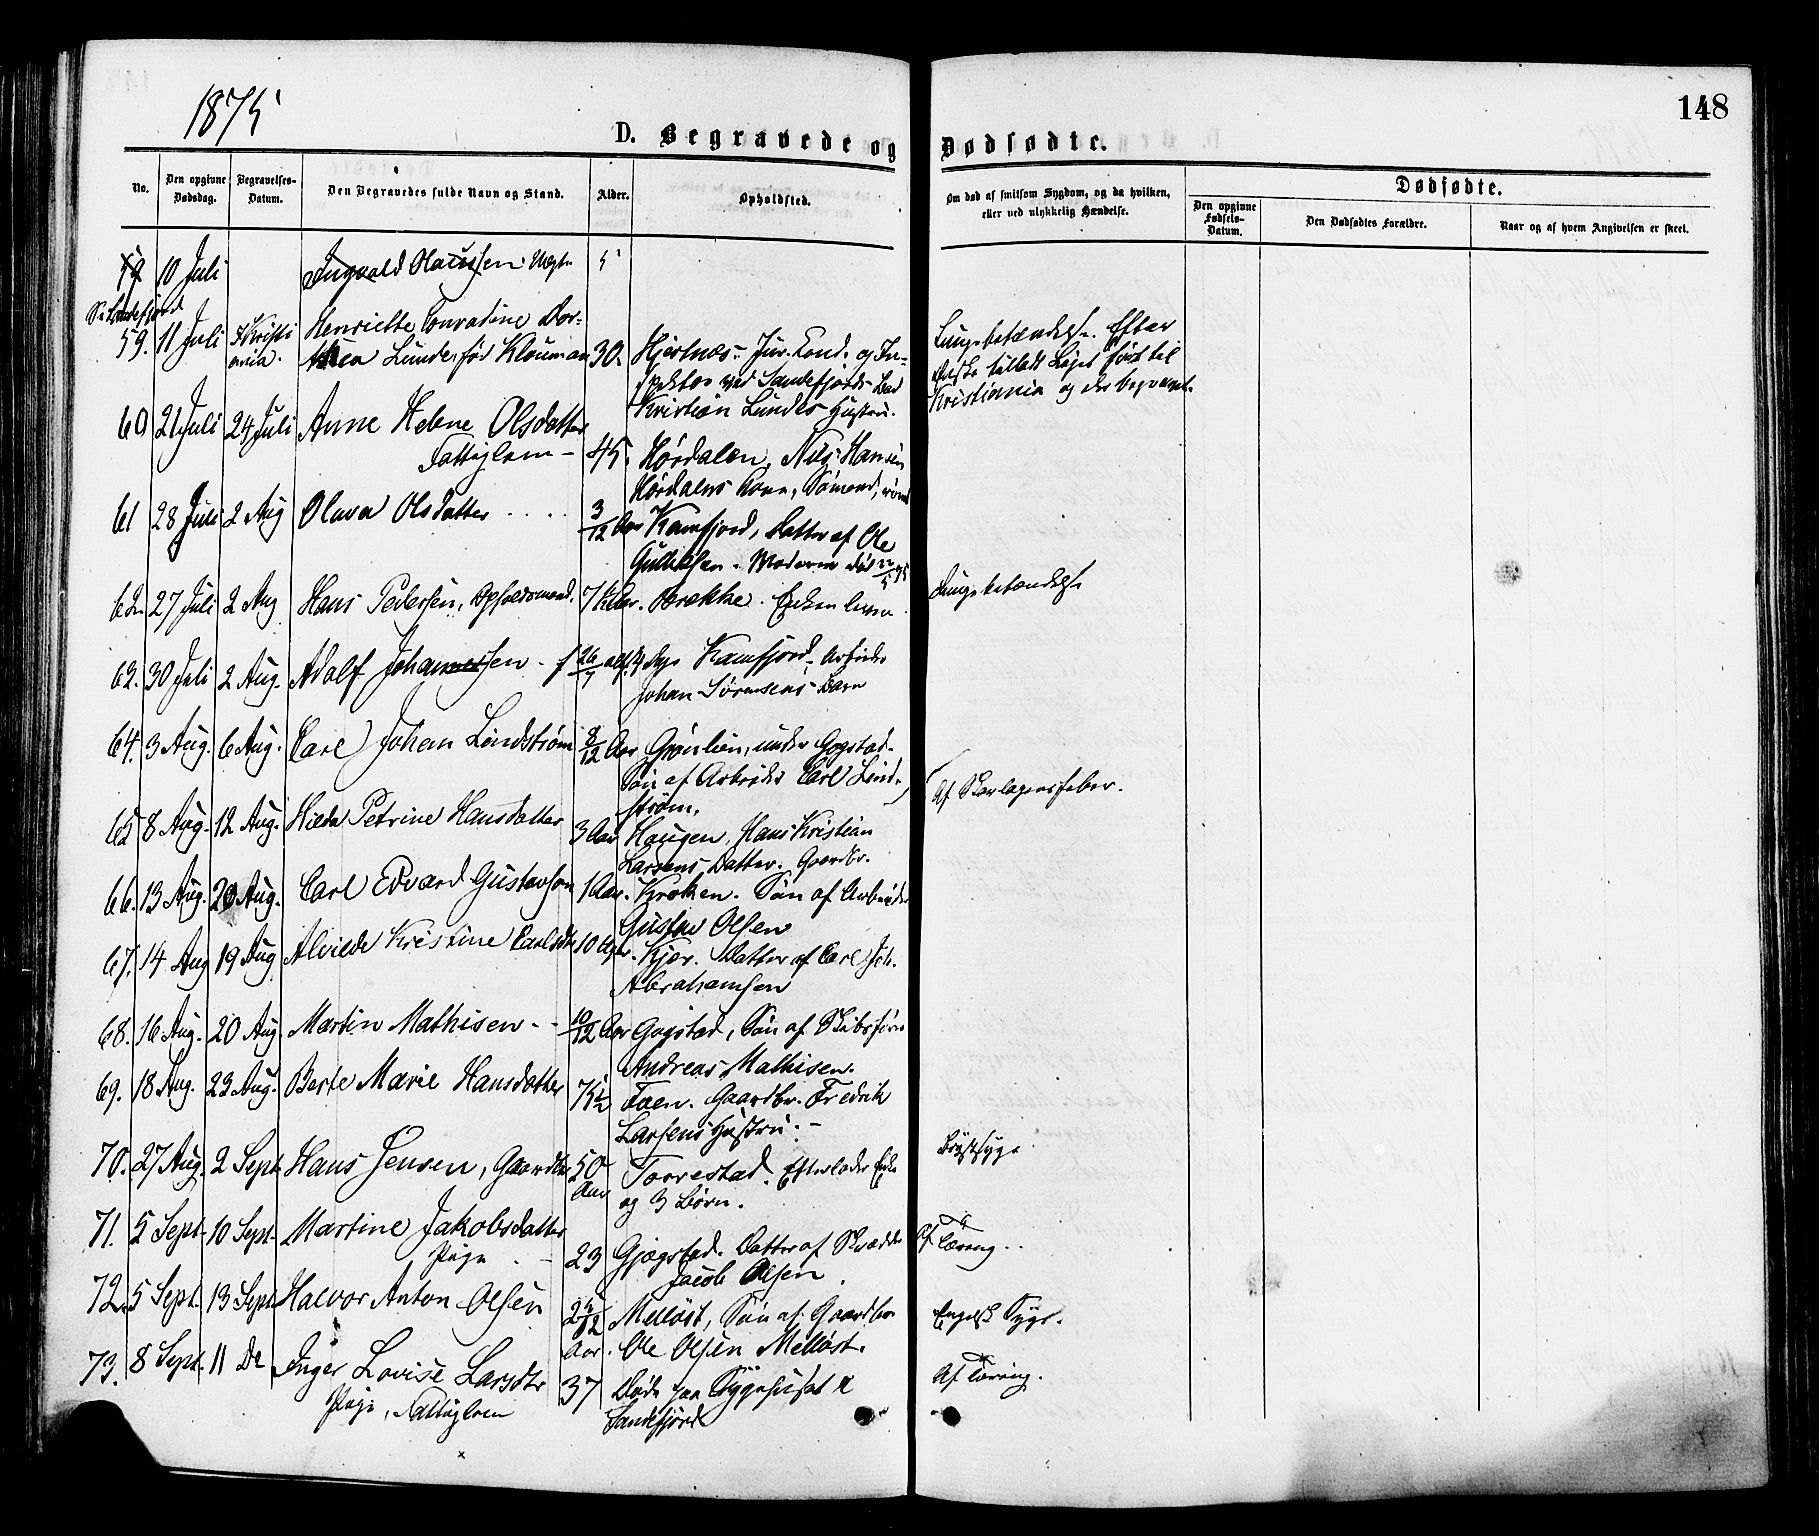 1875
148
D. Begravede og Dødfødte.
No.
Den opgivne Dødsdag.
Begravelses-Datum.
Den Begravedes fulde Navn og Stand.
Alder.
Opholdsted.
Om død af smitsom Sygdom, og da hvilken, eller ved ulykkelig Hændelse.
Dødfødte.
Den opgivne Fødsels-Datum.
Den Dødfødtes Forældre.
Naar og af hvem Angivelsen er skeet.
59 10 Juli Ingvald 5
Sandefjord
59. 11 Juli Kristiania. Henriette Conradine Dor-
thea Lunde, før Klouman 30. Hjertnes. Jur. Cand. og In-
spektør ved Sandefjords Bad
Kristian Lundes Hustru.
Lungebetændelse. Efter
Kristiania og der begravet.
60 21 Juli 24 Juli Anne Helene Olsdatter
Fattiglem - 45. Hørdalen, Nils Hansen
Hørdalens Kone, Sømand,
61 28 Juli 2 Aug Olava Olsdatter 3/12 Aar Kamfjord, Datter af Ole
Gulliksen. Moderen død 22/5 75
62. 27 Juli 2 Aug Hans Pedersen, Aar. Brække. Enken lever.
Lungebetændelse
63. 30 Juli 2 Aug. Adolf Johannessen - f 26/7 Dage Kamfjord, Arbeider
Johan Sørensens Barn
64. 3 Aug. 6 Aug. Carl Johan Lindstrøm 8/12 Aar Grønlien, under Gogstad.
Søn af Arbeider Carl Lind-
strøm.
Af Skarlagensfeber.
65 8 Aug. 12 Aug. Hilda Petrine Hansdatter 3 Aar Haugen, Hans Kristian
Larsens Datter. Gaardbr.
66. 13 Aug. 20 Aug. Carl Edvard Gustavsen 1 Aar. Kroken. Søn af Arbeider
Gustav Olsen
67. 14 Aug 19 Aug Alvilde Kristine Carlsdtr 10 Kjær. Datter af Carl Joh.
Abrahamsen
68. 16 Aug. 20 Aug Martin Mathisen - - 10/12 Aar Gogstad, Søn af Skibsfører
Andreas Mathisen.
69. 18 Aug. 23 Aug. Berte Marie Hansdatter Foen. Gaardbr. Fredrik
Larsens Hustru. -
70. 27 Aug. 2 Sept Hans Jensen, Gaardbr 50 Aar Torrestad. Efterlader Enke
og 3 Børn.
Brystsyge
71. 5 Sept. 10 Sept. Martine Jakobsdatter
Pige - 23 Gjøgstad. Datter af Skrædder
Jacob Olsen.
Af Tæring..
72. 5 Sept. 13 Sept Halvor Anton Olsen Aar. Melløst, Søn af Gaardbr
Ole Olsen Melløst.
Engelsk Syge.
73. 8 Sept. 11 Do Inger Lovise Larsdtr
Pige, Fattiglem 37 Døde paa Sygehuset i
Sandefjord
Af Tæring.